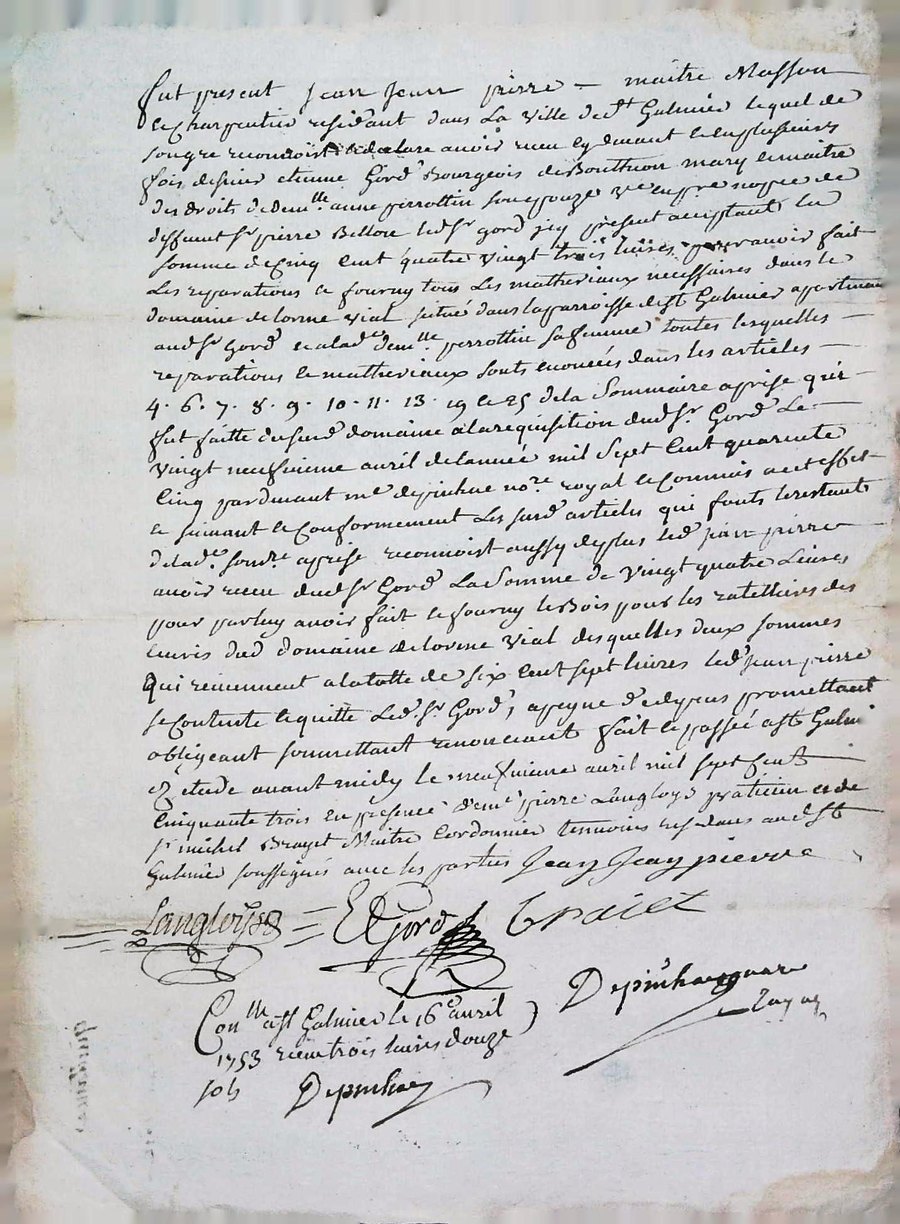 fut present jean jean pierre - maitre Masson
et charpentier residant dans la ville de st Galmier lequel de
son gre reconnoist et declare avoir receu cy devant et en plusieurs
fois de sieur etienne Gord Bourgeois de Boutheon mary et maitre
des droits de demlle anne perrottin son epouze vve en pre nopce de
deffunt sr pierre Bellon led sr gord icy present acceptant la
somme de cinq cent quatre vingt trois livres pour avoir fait
les reparations et fourny tous les matheriaux necessaires dans le
domaine de lorme vial situé dans la parroisse de st Galmier apartenant
aud sr Gord et a lade demlle perrottin sa femme toutes lesquelles -
reparations et matheriaux sonts enoncés dans les articles -
4. 6. 7. 8. 9. 10. 11. 13. 19 et 25 de la sommaire aprise qui
fut faitte dud domaine a la requisition dud sr Gord le -
vingt neufvieme avril de l'année mil sept cent quarente
cinq pardevant me depinhac nore royal et commis a cet effet
et suivant et conformement les susd articles qui fonts le restant
de lade somre aprise reconnoist aussy de plus led jean pierre
avoir receu dud sr Gord la somme de vingt quatre livres
pour par luy avoir fait et fourny le Bois pour les ratelliers des
ecuris dud domaine de lorme vial desquelles deux sommes
qui reviennent a la totte de six cent sept livres led jean pierre
se contente et quitte led sr Gord, a peyne de depens promettant
obligeant soumettant renonceant fait et passé a st Galmier
ez etude avant midy le neufvieme avril mil sept cent
cinquante trois en presence de me pierre Langloys praticien et de
sr michel Brayet Maitre cordonnier temoins residans aud st
Galmier soussignés avec les parties Jean Jean pierre
Langloys EGord braiet
Depinhac noare
royal
Conlle a st Galmier le 16e avril
1753 receu trois livres douze
sols Depinhac